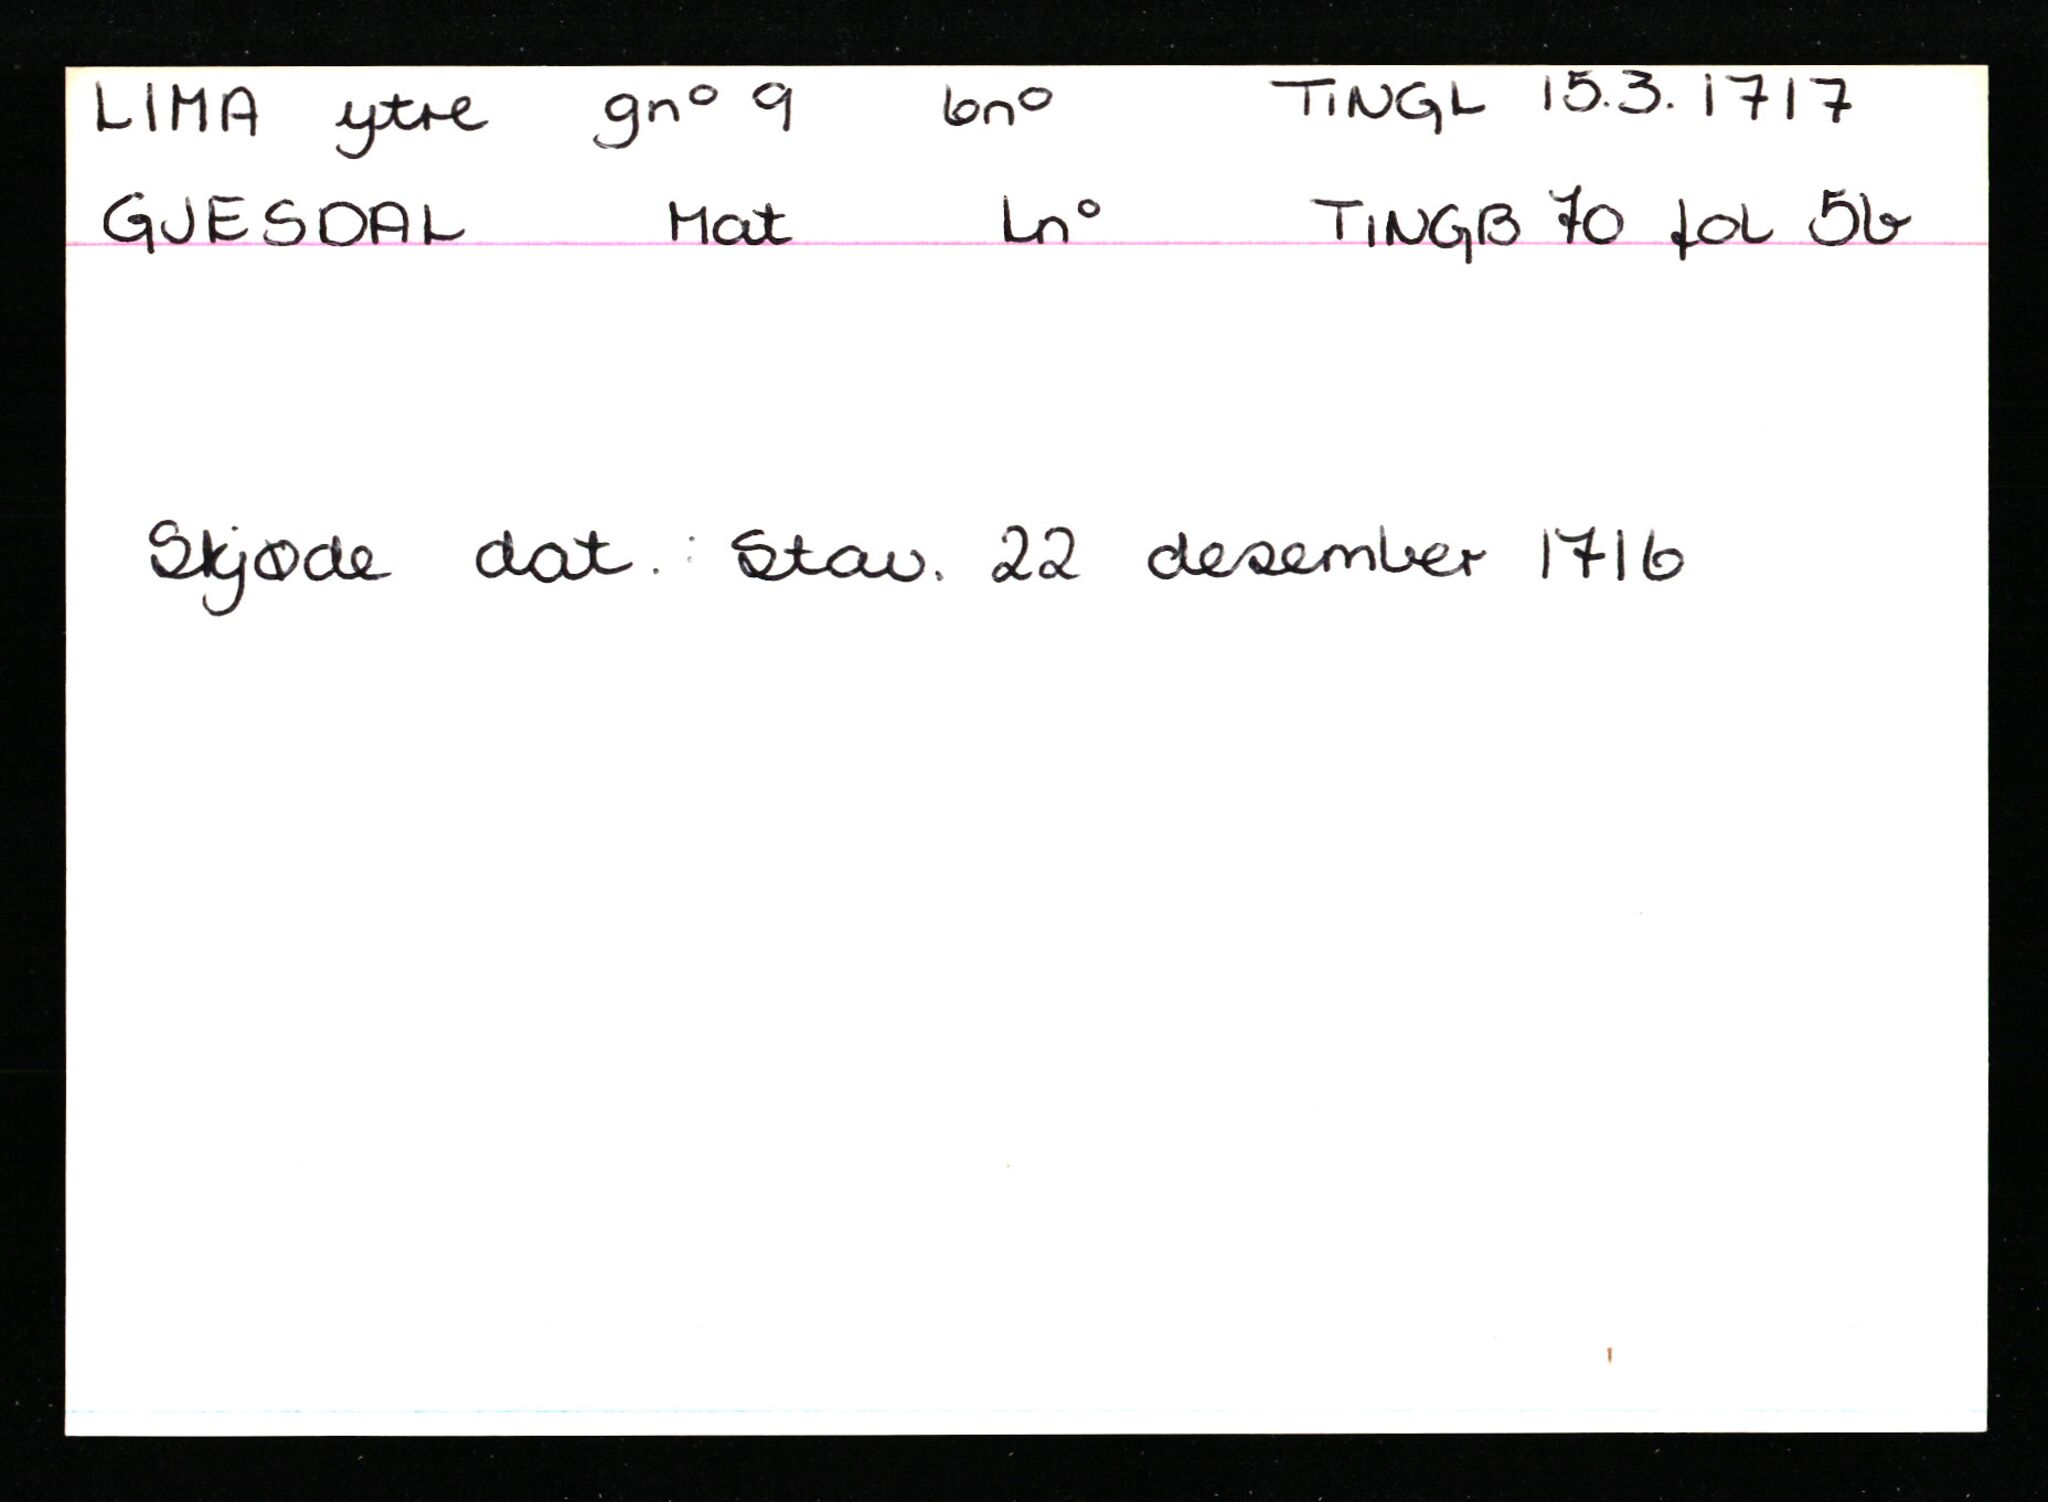 LIMA ytre gnº 9 bnº TiNGL 15.3.1717
GJESDAL Mat Lnº TiNGB 70 fol 5b
Skjøde dat.: Stav. 22 desember 1716